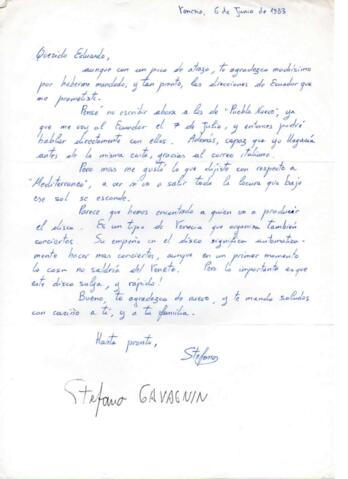 Venecia, 6 de Junio de 1983
Querido Eduardo,
aunque con un pico de atrazo, te agradezco muchísimo
por haberme mandado, y tan pronto, las direcciones de Ecuador que
me prometiste.
Pensé no escribir ahora a los de "Pueblo Nuevo", ya
que me voy al Ecuador el 7 de Julio, y entonces podré
hablar directamente con ellos. Además, capaz que yo llegaría
antes de la misma carta, gracias al correo italiano.
Pero mas me gustó lo que dijiste con respecto a
"Mediterraneo", a ver si va a salir toda la locura que bajo
ese sol se esconde.
Parece que hemos encontrado a quien va a producir
el disco. Es un tipo de Venecia que organiza también
conciertos. Su empeño en el disco significa automatica-
mente hacer mas conciertos, aunque en un primer momento
la cosa no saldría del Veneto. Pero lo importante es que
este disco salga, y rápido!
Bueno, te agradezco de nuevo, y te mando saludos
con cariño a tí, y a tu familia.
Hasta pronto,
Stefano
Stefano GAVAGNIN